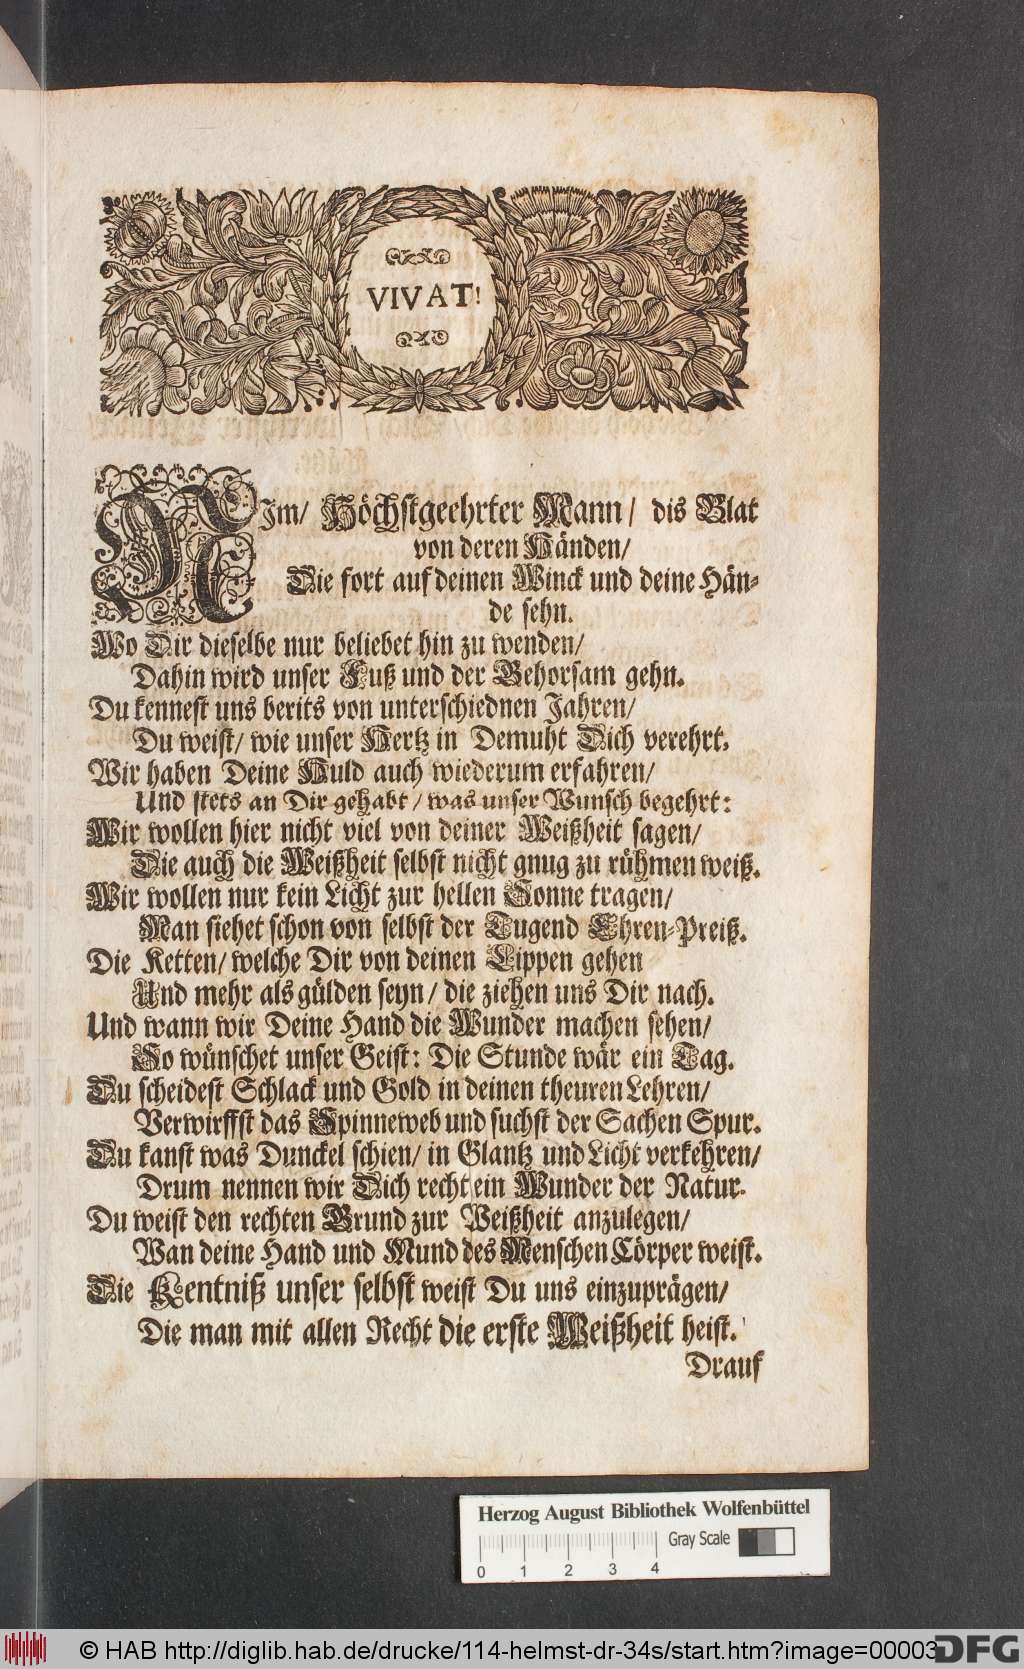 VIVAT!
NIm/ Höchstgeehrter Mann/ dis Blat
von deren Händen/
Die fort auf deinen Winck und deine Hän-
de sehn.
Wo Dir dieselbe nur beliebet hin zu wenden/
Dahin wird unser Fuß und der Gehorsam gehn.
Du kennest uns berits von unterschiednen Jahren/
Du weist/ wie unser Hertz in Demuht Dich verehrt.
Wir haben Deine Huld auch wiederum erfahren/
Und stets an Dir gehabt/ was unser Wunsch begehrt:
Wir wollen hier nicht viel von deiner Weißheit sagen/
Die auch die Weißheit selbst nicht gnug zu rühmen weiß.
Wir wollen nur kein Licht zur hellen Sonne tragen/
Man siehet schon von selbst der Tugend Ehren-Preiß.
Die Ketten/ welche Dir von deinen Lippen gehen
Und mehr als gülden seyn/ die ziehen uns Dir nach.
Und wann wir Deine Hand die Wunder machen sehen/
So wünschet unser Geist: Die Stunde wär ein Tag.
Du scheidest Schlack und Gold in deinen theuren Lehren/
Verwirffst das Spinneweb und suchst der Sachen Spur.
Du kanst was Dunckel schien/ in Glantz und Licht verkehren/
Drum nennen wir Dich recht ein Wunder der Natur.
Du weist den rechten Grund zur Weißheit anzulegen/
Wan deine Hand und Mund des Menschen Cörper weist.
Die Kentniß unser selbst weist Du uns einzuprägen/
Die man mit allen Recht die erste Weißheit heist.
Drauf
Herzog August Bibliothek Wolfenbüttel
Gray Scale
0 1 2 3 4
© HAB http://diglib.hab.de/drucke/114-helmst-dr-34s/start.htm?image=00003
DFG